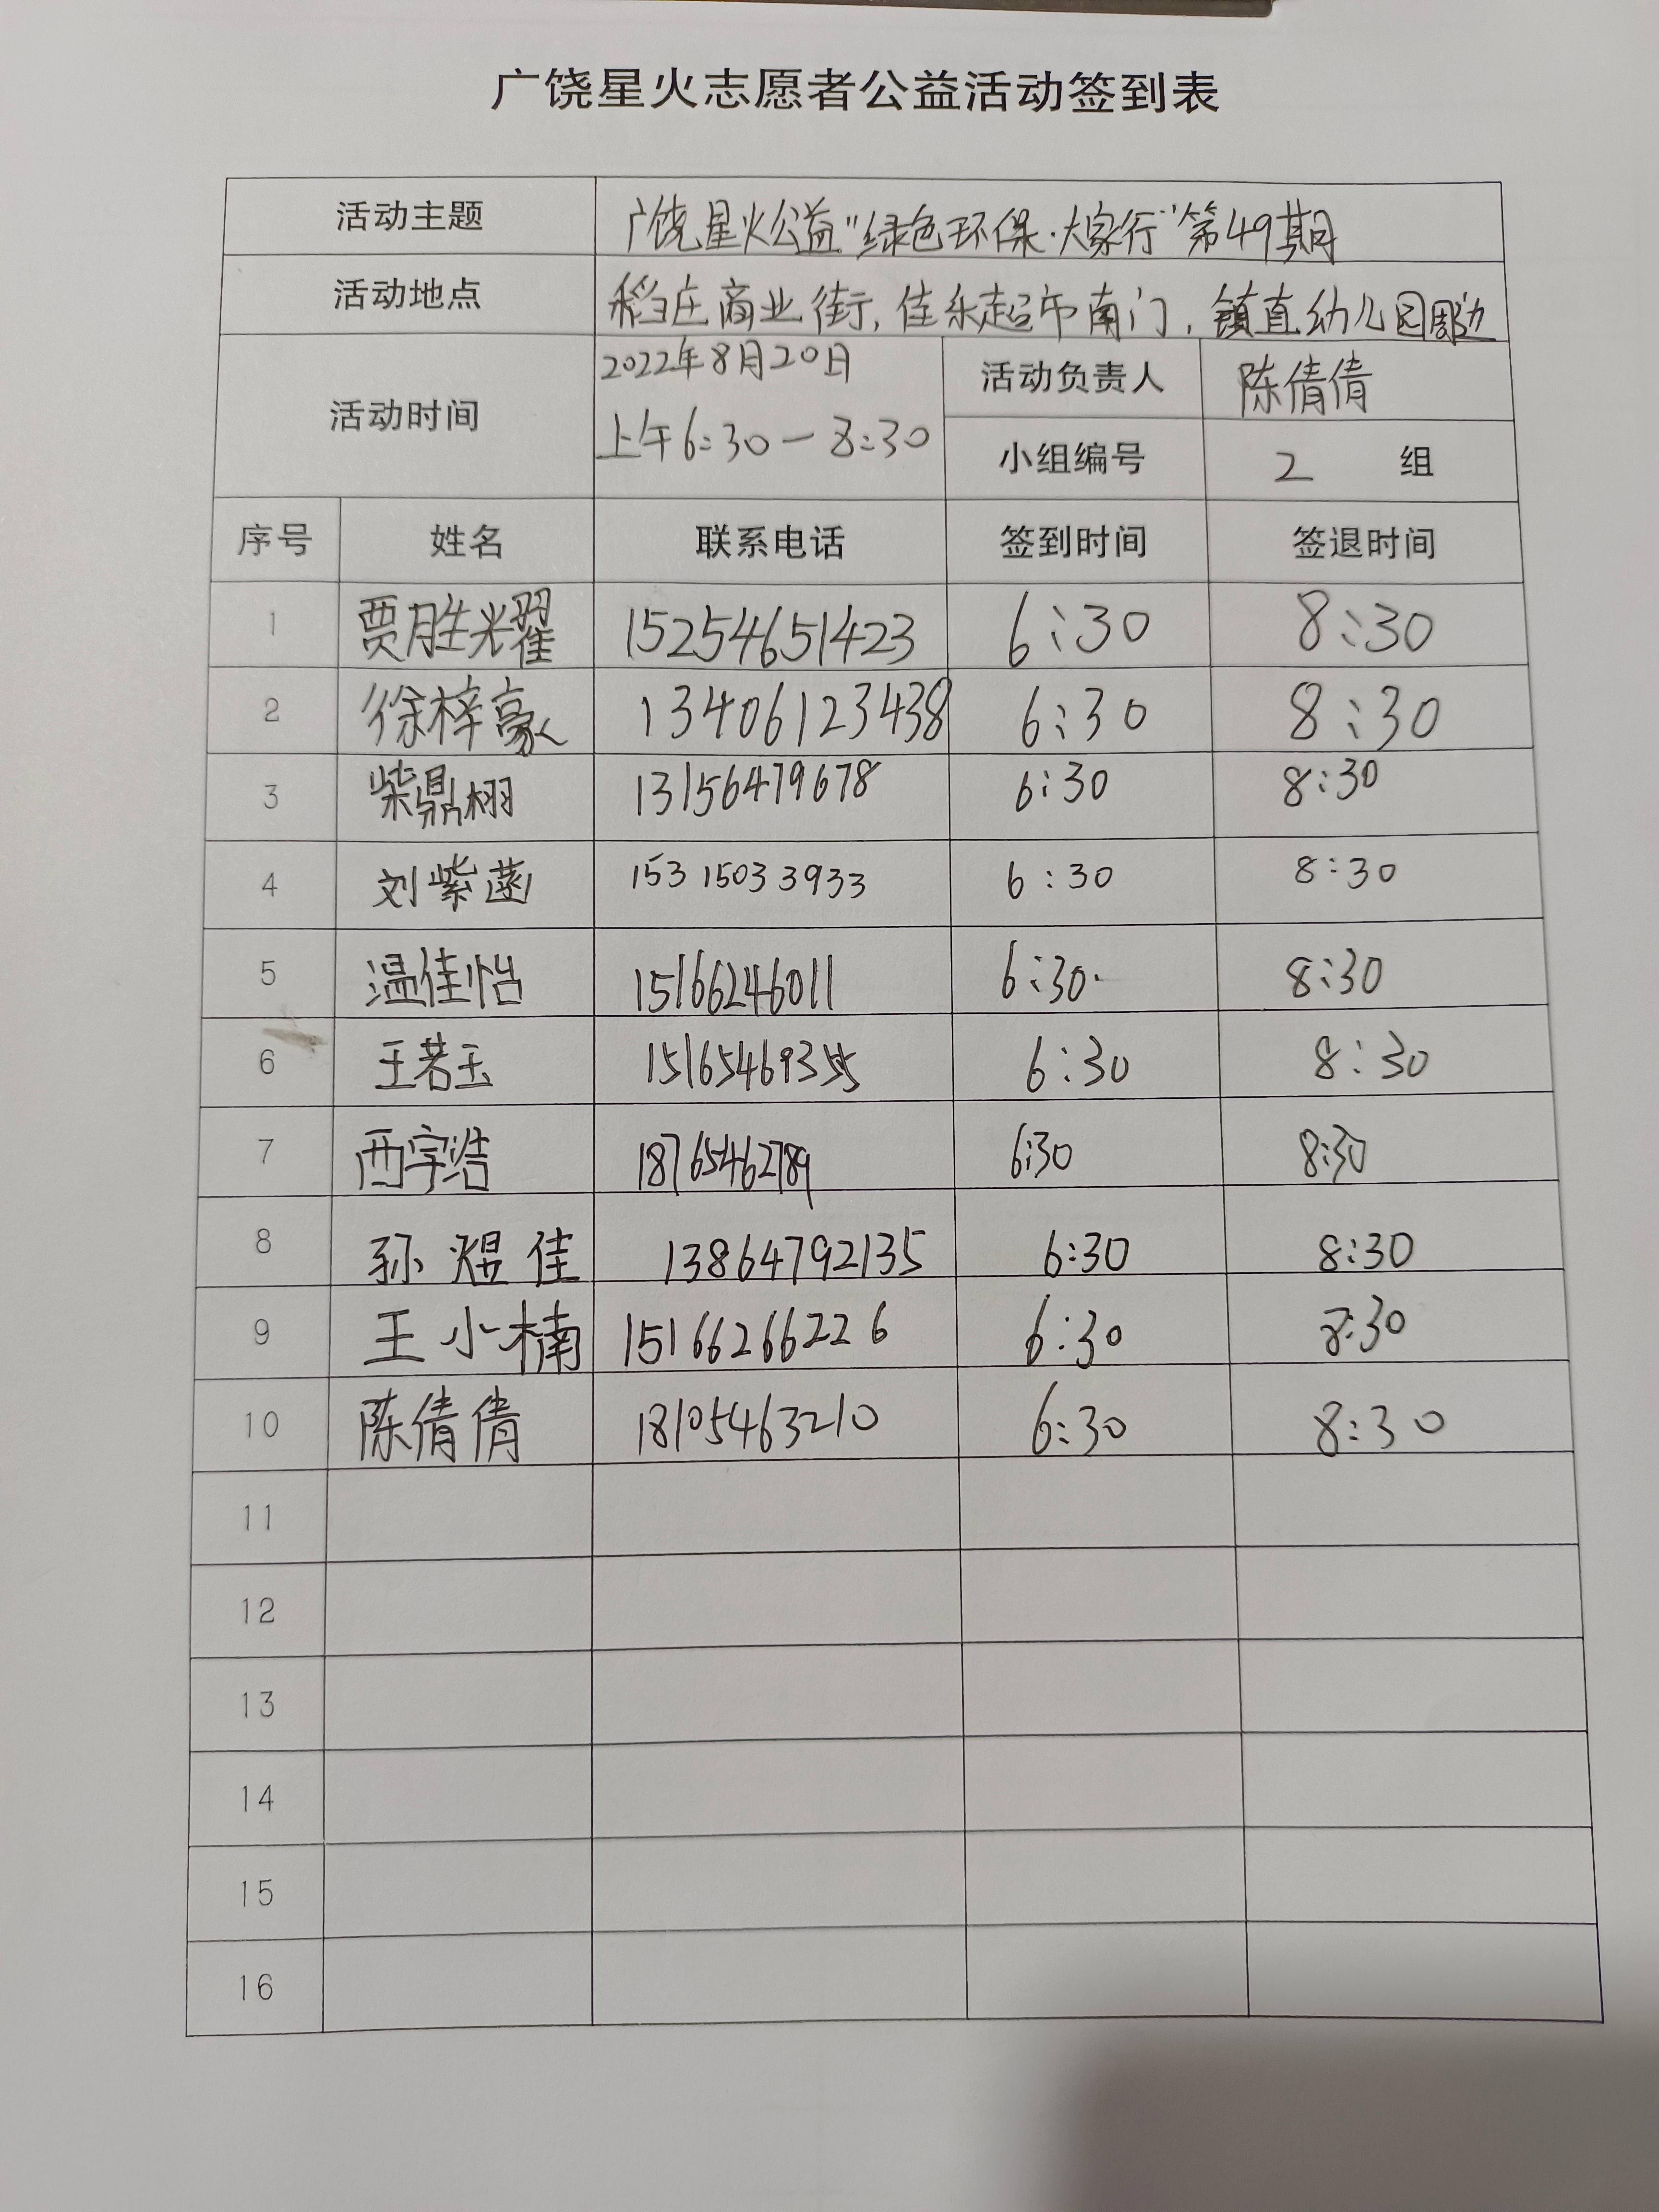 广饶星火志愿者公益活动签到表
活动主题 广饶星火公益"绿色环保·大家行"第49期
活动地点 稻庄商业街,佳乐超市南门,镇直幼儿园周边
活动时间 2022年8月20日 上午6:30—8:30
活动负责人 陈倩倩
小组编号 2 组
序号 姓名 联系电话 签到时间 签退时间
1 贾胜光耀 15254651423 6:30 8:30
2 徐梓豪 13406123438 6:30 8:30
3 柴鼎栩 13156479678 6:30 8:30
4 刘紫菡 153 1503 3933 6:30 8:30
5 温佳怡 15166246011 6:30 8:30
6 王若玉 15165469355 6:30 8:30
7 西宇浩 18765462789 6:30 8:30
8 孙煜佳 13864792135 6:30 8:30
9 王小楠 15166266226 6:30 8:30
10 陈倩倩 18105463210 6:30 8:30
11
12
13
14
15
16